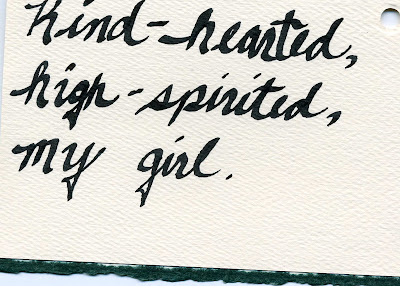 Kind-hearted,
high-spirited,
my girl.